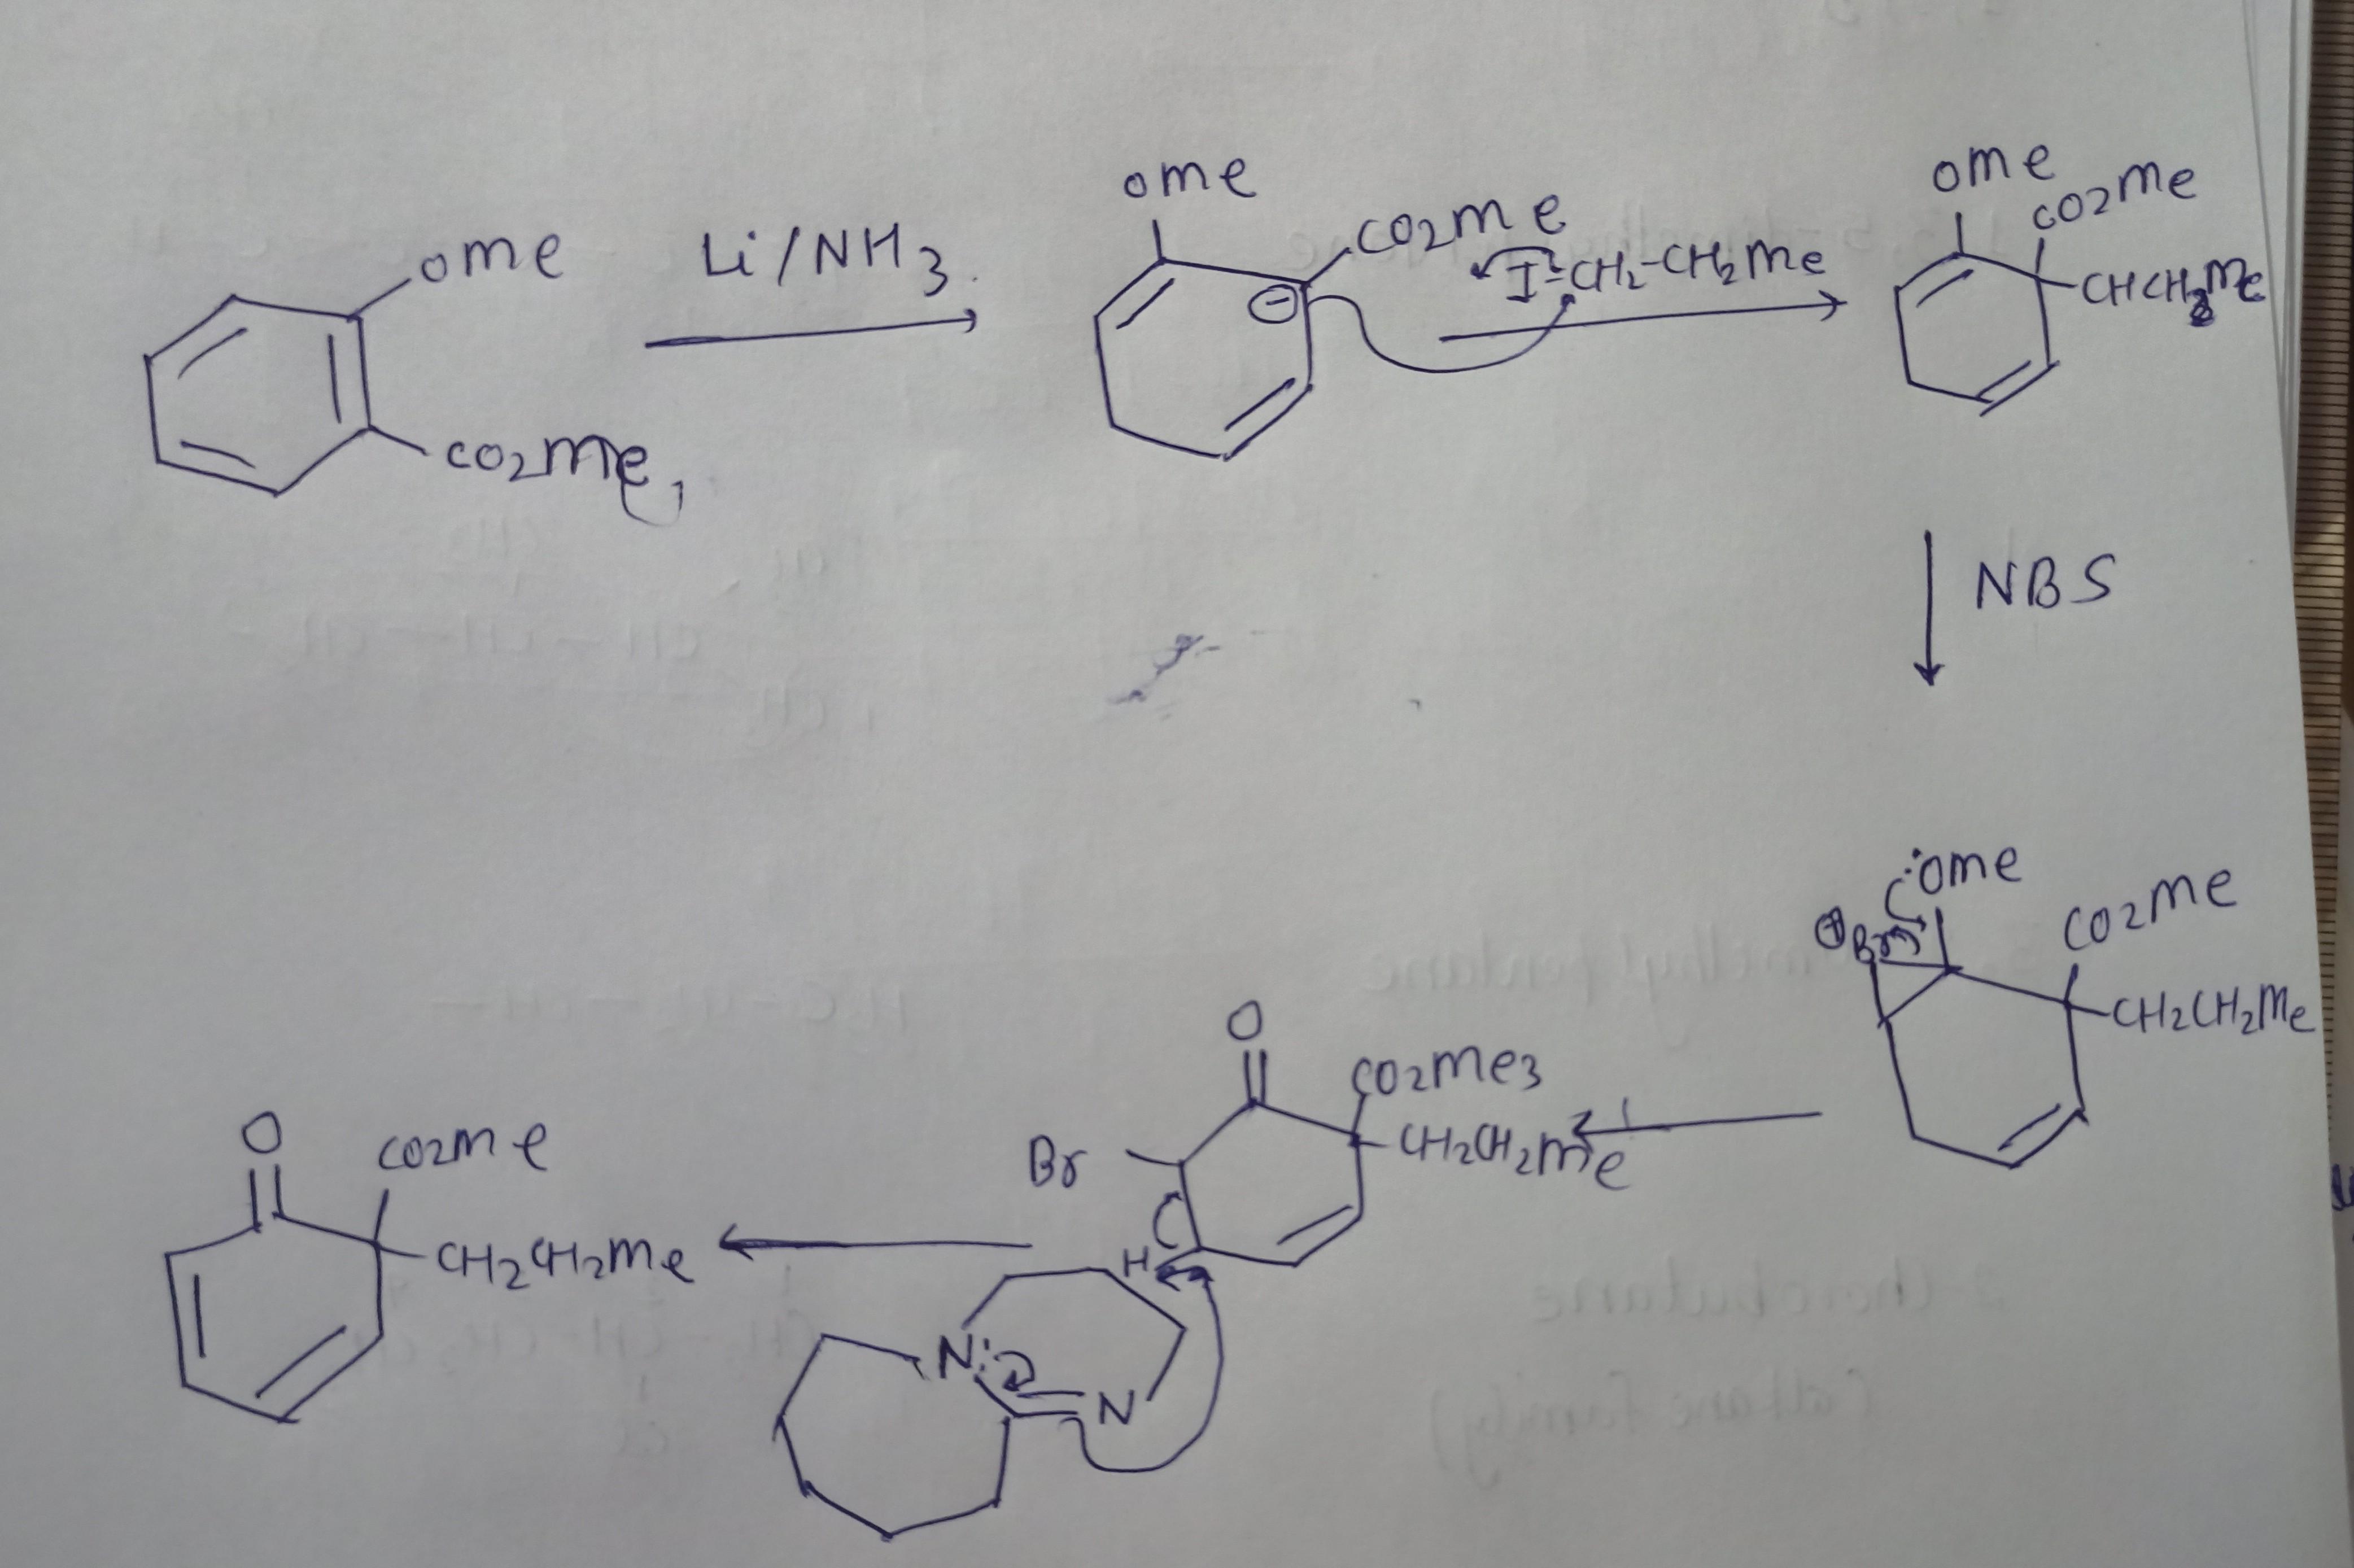 OMe
CO2Me,
Li/NH3
OMe
CO2Me
⊖
I-CH2-CH2Me
OMe
CO2Me
CHCH2Me
NBS
:OMe
⊕Br
CO2Me
CH2CH2Me
O
CO2Me3
CH2CH2Me
Br
H
N:
N
O
CO2Me
CH2CH2Me